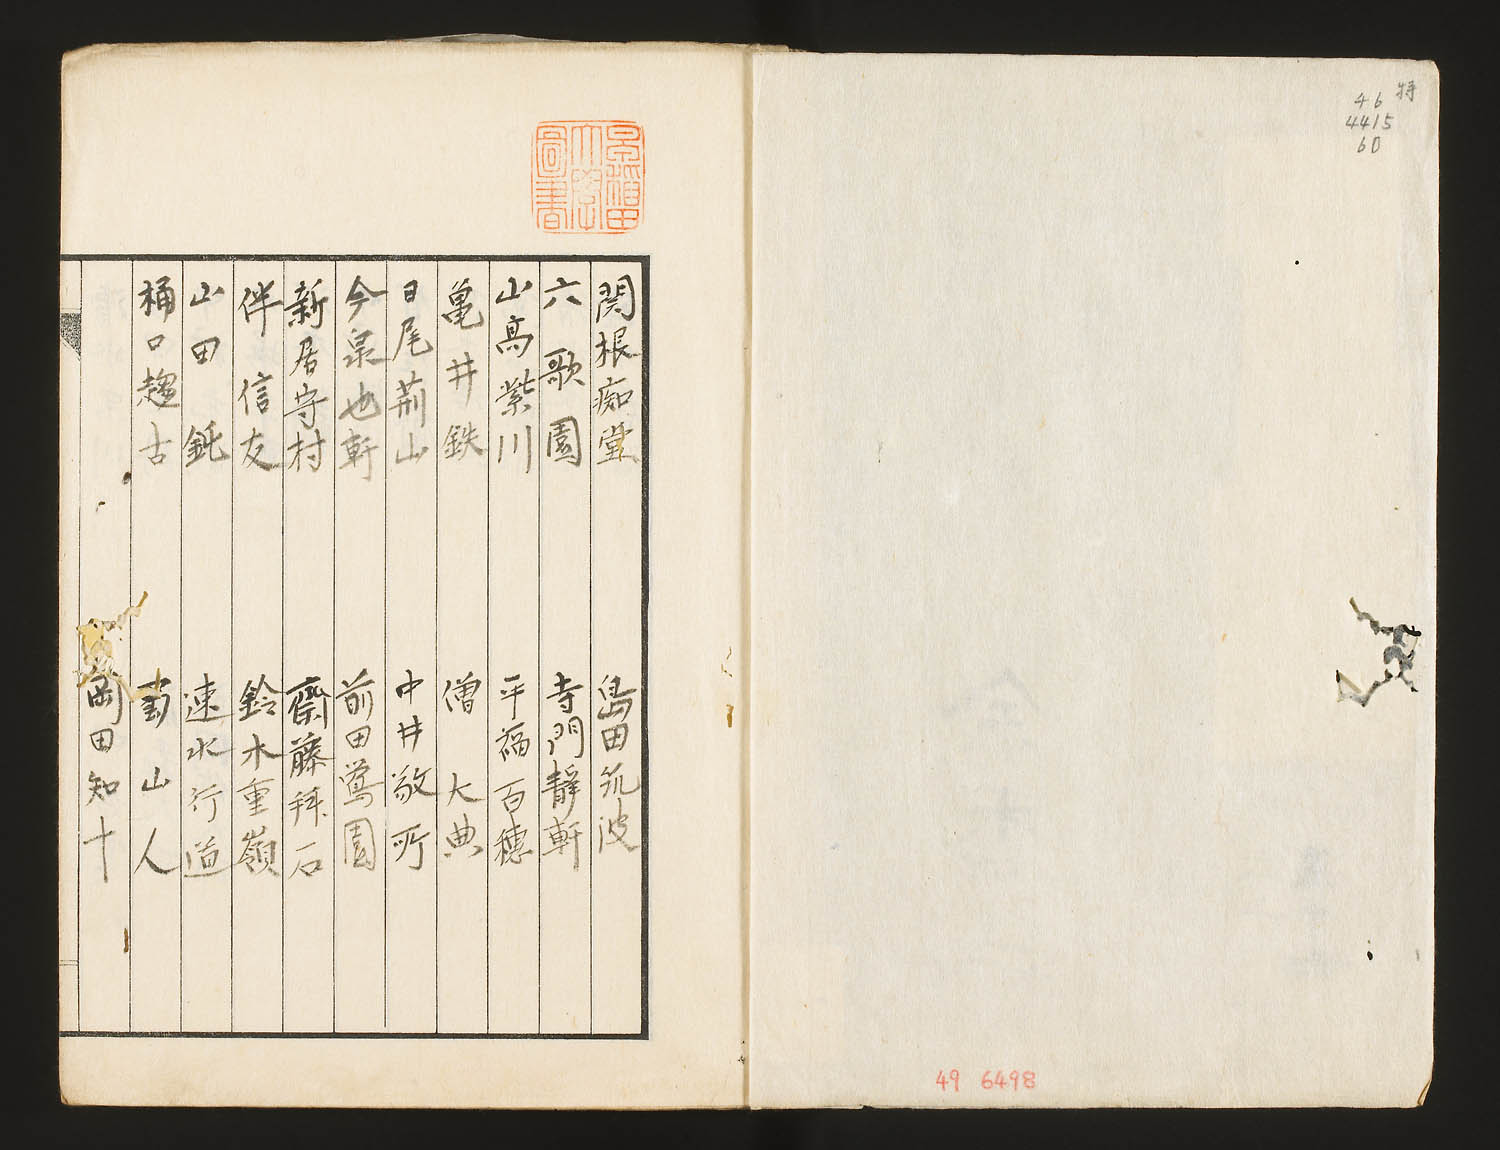 特
46
4415
60
49 6498
早稲田
大學
圖書
関根痴堂
島田筑波
六歌園
寺門静軒
山高紫川
平福百穂
亀井鉄
僧大典
日尾荊山
中井敬所
今泉也軒
前田鶯園
新居守村
齋藤拜石
伴信友
鈴木重嶺
山田鈍
速水行道
桶口趨古
山人
岡田知十